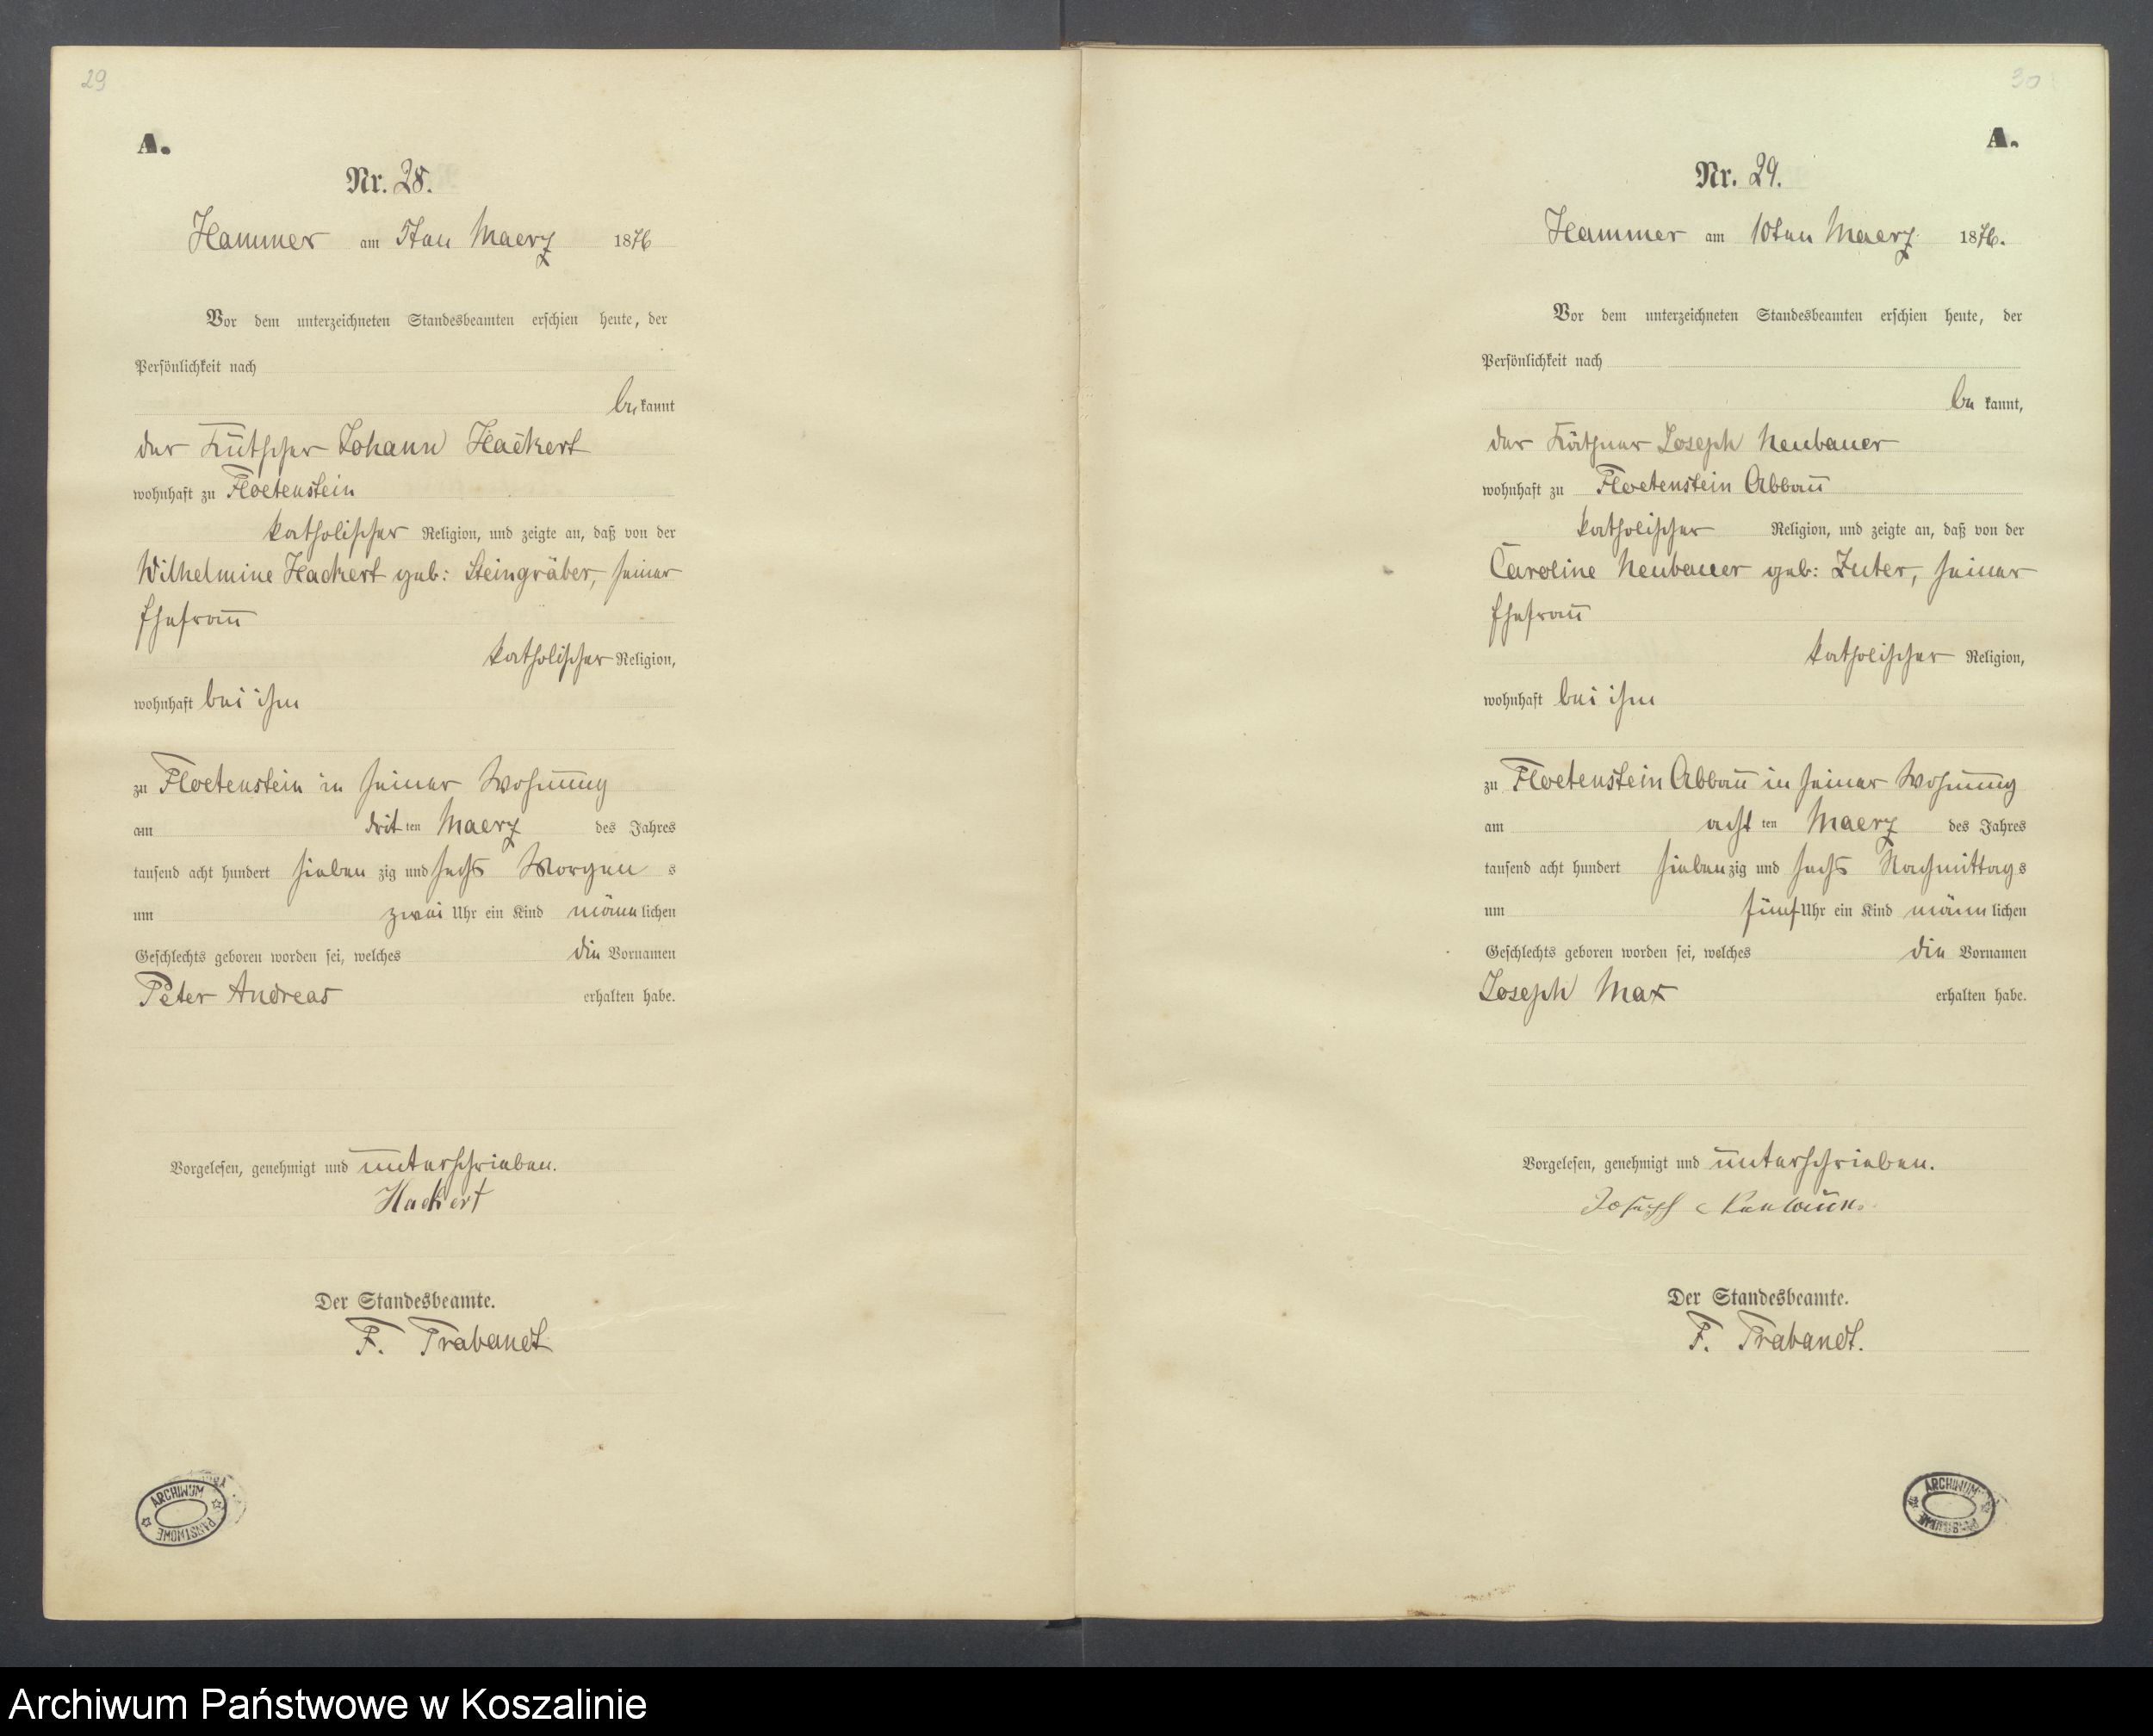 29
A.
Nr. 28.
Hammer am 5ten Maerz 1876
Vor dem unterzeichneten Standesbeamten erschien heute, der
Persönlichkeit nach
be kannt
der Kutscher Johann Hackert
wohnhaft zu Floetenstein
katholischer Religion, und zeigte an, daß von der
Wilhelmine Hackert geb: Steingräber, seiner
Ehefrau
katholischer Religion,
wohnhaft bei ihm
zu Floetenstein in seiner Wohnung
am drit ten Maerz des Jahres
tausend acht hundert sieben zig und sechs Morgen s
um zwei Uhr ein Kind männ lichen
Geschlechts geboren worden sei, welches die Vornamen
Peter Andreas erhalten habe.
Vorgelesen, genehmigt und unterschrieben.
Hackert
Der Standesbeamte.
F. Trabandt
ARCHIWUM PAŃSTWOWE
30
A.
Nr. 29.
Hammer am 10ten Maerz 1876.
Vor dem unterzeichneten Standesbeamten erschien heute, der
Persönlichkeit nach
be kannt,
der Käthner Joseph Neubauer
wohnhaft zu Floetenstein Abbau
katholischer Religion, und zeigte an, daß von der
Caroline Neubauer geb: Zuter, seiner
Ehefrau
katholischer Religion,
wohnhaft bei ihm
zu Floetenstein Abbau in seiner Wohnung
am acht ten Maerz des Jahres
tausend acht hundert sieben zig und sechs Nachmittag s
um fünf Uhr ein Kind männ lichen
Geschlechts geboren worden sei, welches die Vornamen
Joseph Max erhalten habe.
Vorgelesen, genehmigt und unterschrieben.
Joseph
Der Standesbeamte.
F. Trabandt.
ARCHIWUM PAŃSTWOWE
Archiwum Państwowe w Koszalinie